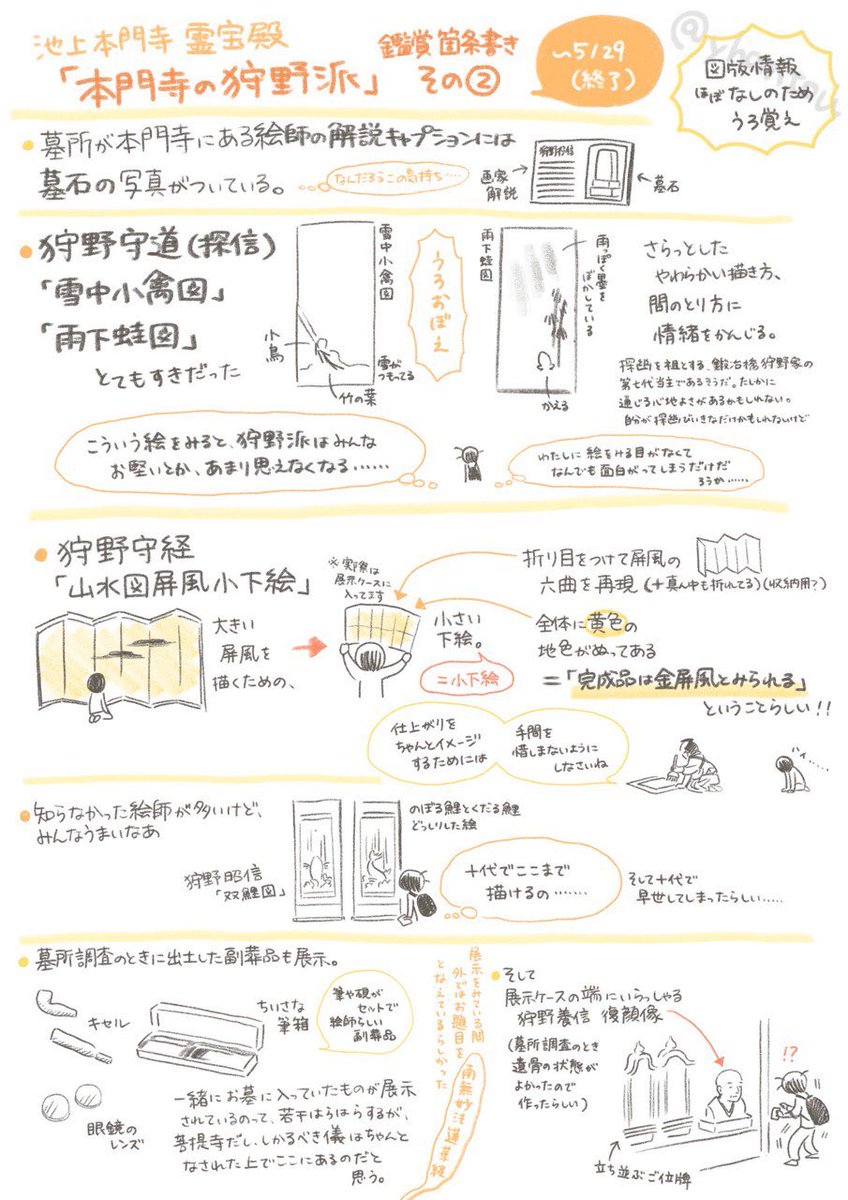 池上本門寺 霊宝殿
鑑賞 箇条書き
「本門寺の狩野派」 その②
〜5/29
(終了)
図版情報
ほぼなしのため
うろ覚え
墓所が本門寺にある絵師の解説キャプションには
墓石の写真がついている。
なんだろうこの気持ち……
画家
解説
墓石
狩野守道(探信)
「雪中小禽図」
「雨下蛙図」
とてもすきだった
雪中小禽図
小鳥
雪が
つもってる
竹の葉
うろおぼえ
雨下蛙図
雨っぽく墨を
ぼかしている
かえる
さらっとした
やわらかい描き方、
間のとり方に
情緒をかんじる。
探幽を祖とする、鍛冶橋狩野家の
第七代当主であるそうだ。たしかに
通じる心地よさがあるかもしれない。
自分が探幽びいきなだけかもしれないけど
こういう絵をみると、狩野派はみんな
お堅いとか、あまり思えなくなる……
わたしに絵をみる目がなくて
なんでも面白がってしまうだけだ
ろうか……
狩野守経
「山水図屏風小下絵」
大きい
屏風を
描くための、
※実際は
展示ケースに
入ってます
小さい
下絵。
=小下絵
折り目をつけて屏風の
六曲を再現 (+真ん中も折れてる)(収納用?)
全体に黄色の
地色がぬってある
=「完成品は金屏風とみられる」
ということらしい!!
仕上がりを
ちゃんとイメージ
するためには
手間を
惜しまないように
しなさいね
知らなかった絵師が多いけど、
みんなうまいなあ
狩野昭信
「双鯉図」
のぼる鯉とくだる鯉
どっしりした絵
十代でここまで
描けるの……
そして十代で
早世してしまったらしい……
墓所調査のときに出土した副葬品も展示。
キセル
ちいさな
筆箱
筆や硯が
セットで
絵師らしい
副葬品
眼鏡の
レンズ
一緒にお墓に入っていたものが展示
されているのって、若干はらはらするが、
菩提寺だし、しかるべき儀はちゃんと
なされた上でここにあるのだと
思う。
展示をみている間
外ではお題目を
となえているらしかった
南無妙法蓮華経
そして
展示ケースの端にいらっしゃる
狩野養信 復顔像
(墓所調査のとき
遺骨の状態が
よかったので
作ったらしい)
!?
立ち並ぶご位牌